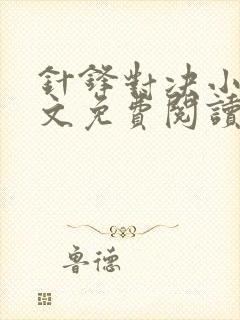 針鋒對決小
文免費閱讀
魯德